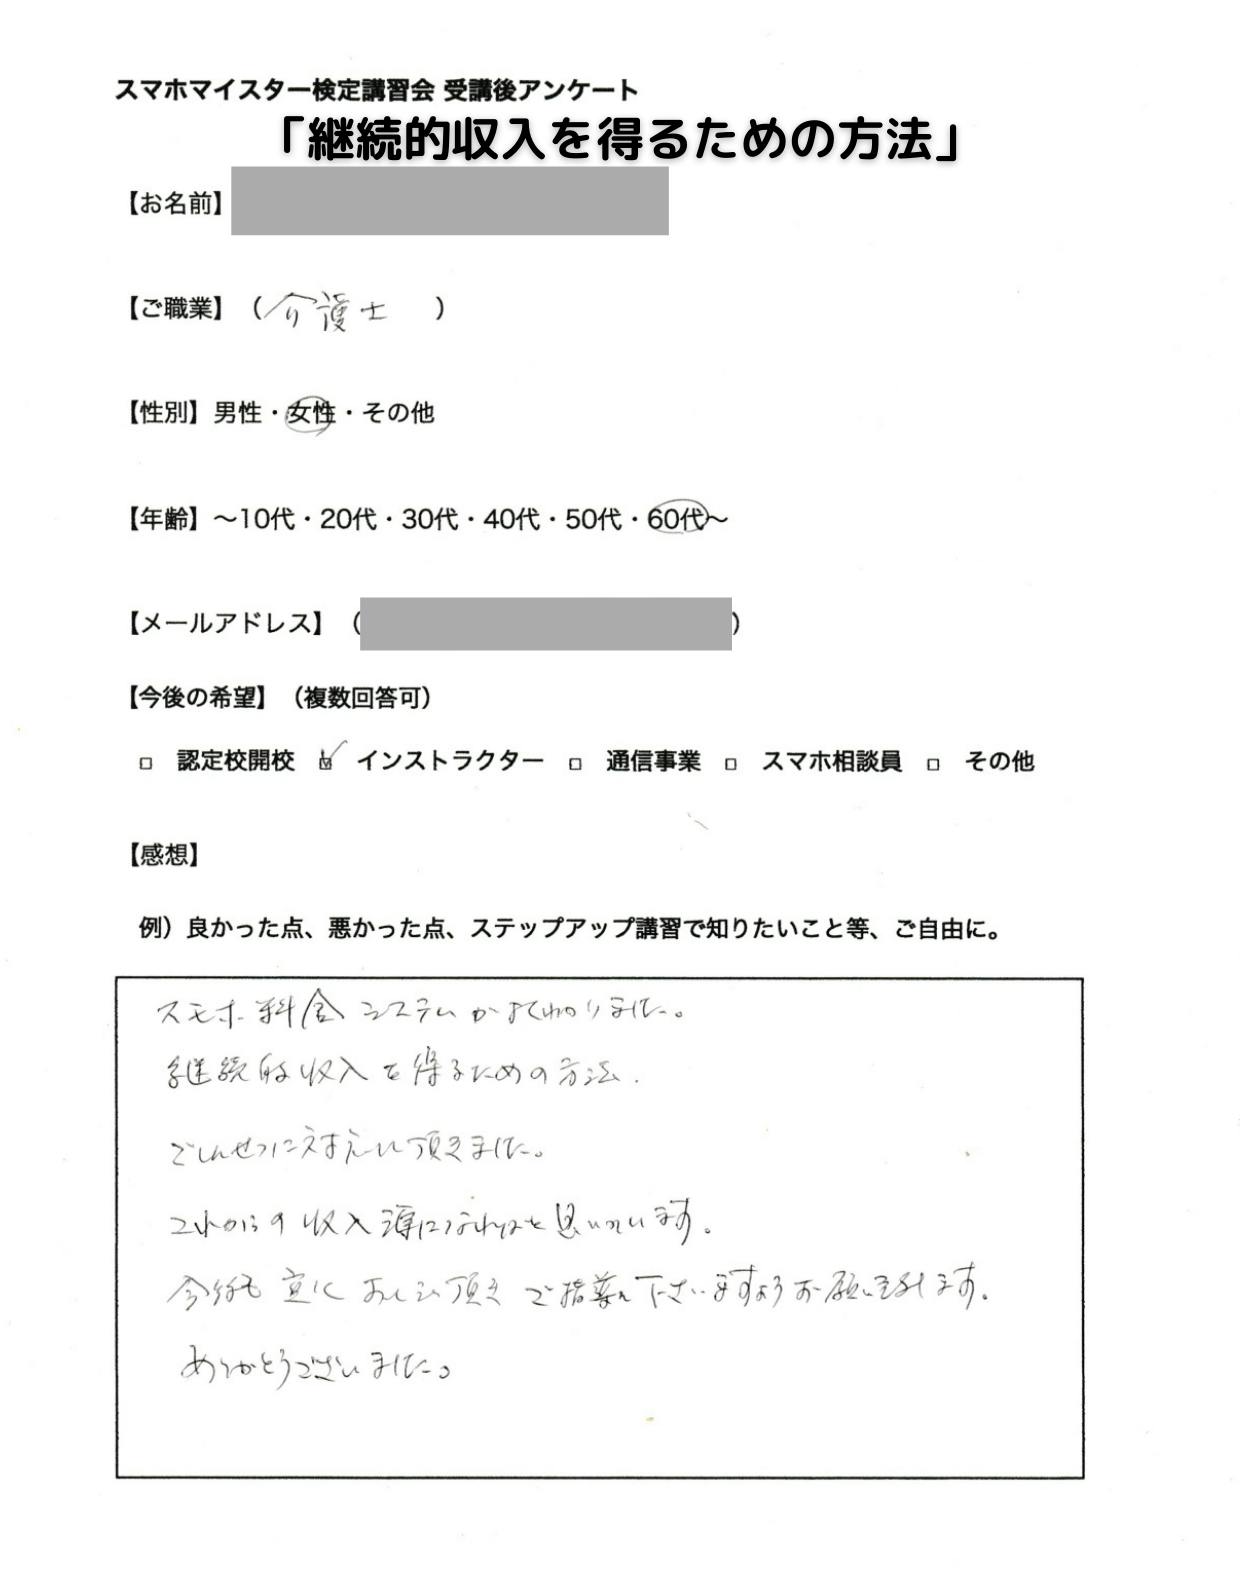 スマホマイスター検定講習会 受講後アンケート
「継続的収入を得るための方法」
【お名前】
【ご職業】（介護士）
【性別】男性・女性・その他
【年齢】～10代・20代・30代・40代・50代・60代～
【メールアドレス】（ ）
【今後の希望】（複数回答可）
□ 認定校開校 ☑ インストラクター □ 通信事業 □ スマホ相談員 □ その他
【感想】
例）良かった点、悪かった点、ステップアップ講習で知りたいこと等、ご自由に。
スマホ料金システムがよくわかりました。
継続的収入を得るための方法.
ごしんせつに教えて頂きました。
これからの収入源になればと思っています。
今後も宜しく ご指導下さいますようお願い致します。
ありがとうございました。